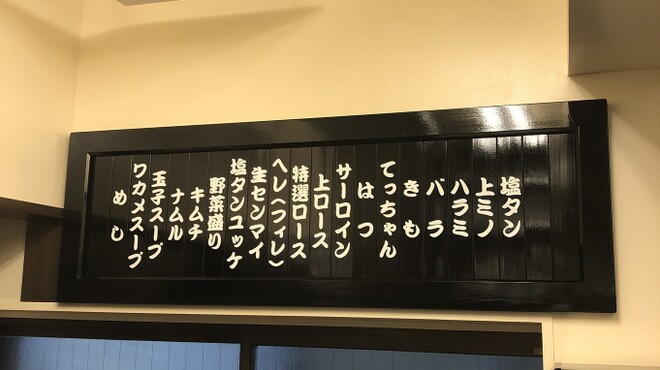 塩タン
上ミノ
ハラミ
バラ
きも
てっちゃん
はつ
サーロイン
上ロース
特選ロース
ヘレ(フィレ)
生センマイ
塩タンユッケ
野菜盛り
キムチ
ナムル
玉子スープ
ワカメスープ
めし